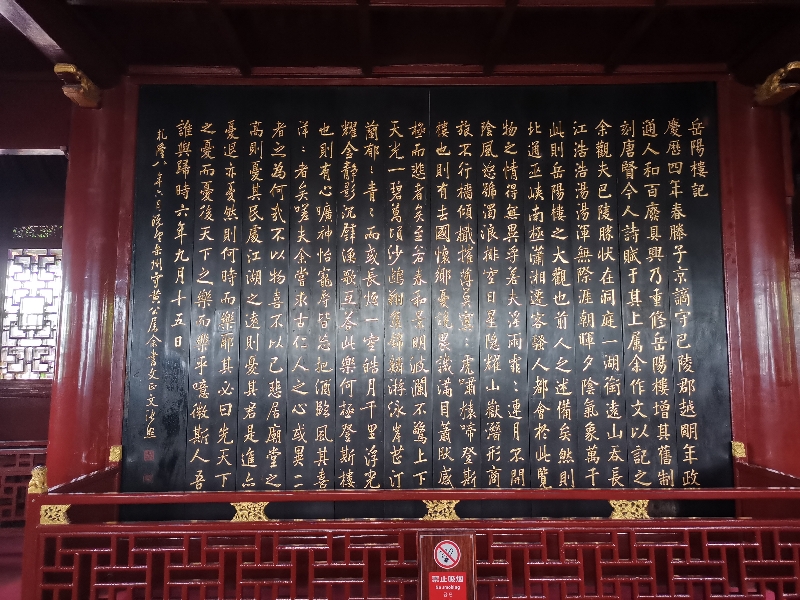 岳陽樓記
慶歷四年春滕子京謫守巴陵郡越明年政
通人和百廢具興乃重修岳陽樓增其舊制
刻唐賢今人詩賦于其上屬余作文以記之
余觀夫巴陵勝狀在洞庭一湖銜遠山吞長
江浩浩湯湯渾無際涯朝暉夕陰氣象萬千
此則岳陽樓之大觀也前人之述備矣然則
北通巫峽南極瀟湘遷客騷人都會於此覽
物之情得無異乎若夫淫雨霏〻連月不開
陰風怒號濁浪排空日星隱耀山嶽潛形商
旅不行檣傾檝摧薄暮冥〻虎嘯猿啼登斯
樓也則有去國懷鄉憂讒畏譏滿目蕭然感
極而悲者矣至若春和景明波瀾不驚上下
天光一碧萬頃沙鷗翔集錦鱗游泳岸芷汀
蘭郁〻青〻而或長煙一空皓月千里浮光
耀金靜影沉璧漁歌互答此樂何極登斯樓
也則有心曠神怡寵辱皆忘把酒臨風其喜
洋〻者矣嗟夫余嘗求古仁人之心或異二
者之為何哉不以物喜不以己悲居廟堂之
高則憂其民處江湖之遠則憂其君是進亦
憂退亦憂然則何時而樂耶其必曰先天下
之憂而憂後天下之樂而樂乎噫微斯人吾
誰與歸時六年九月十五日
乾隆八年岳州守黃公屬余書文正文張照
禁止吸烟
No smoking